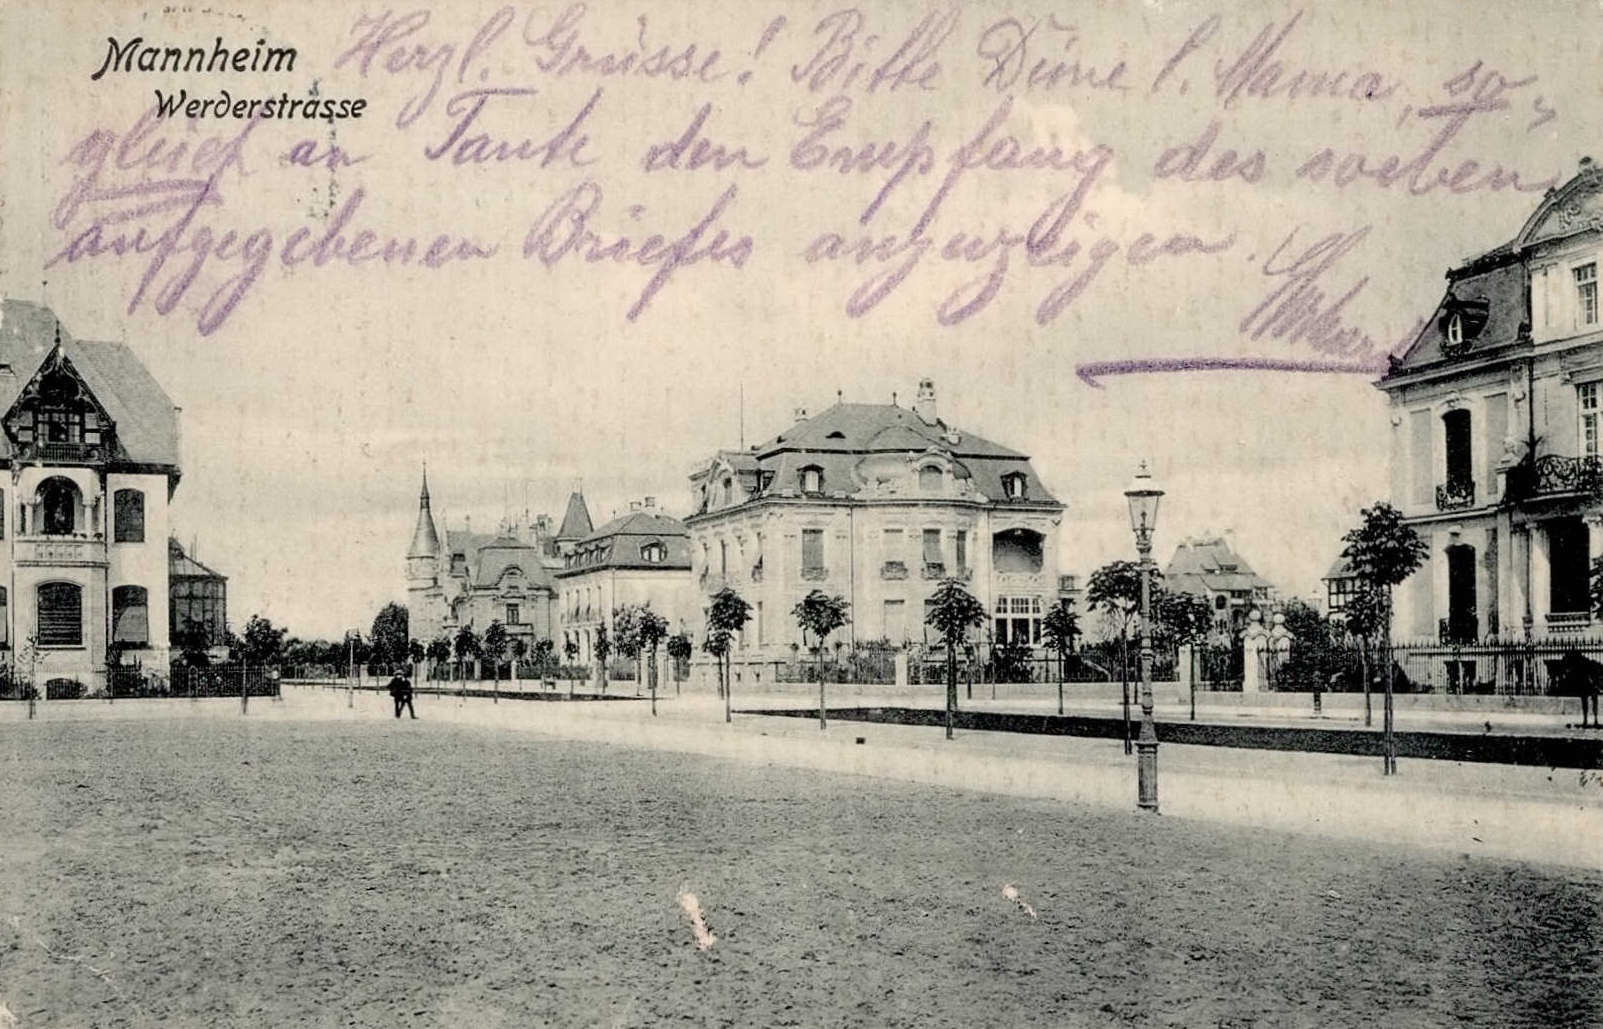 Mannheim
Werderstrasse
Herzl. Grüsse! Bitte Deine l. Mama, so-
gleich an Tante den Empfang des soeben
aufgegebenen Briefes anzuzeigen.